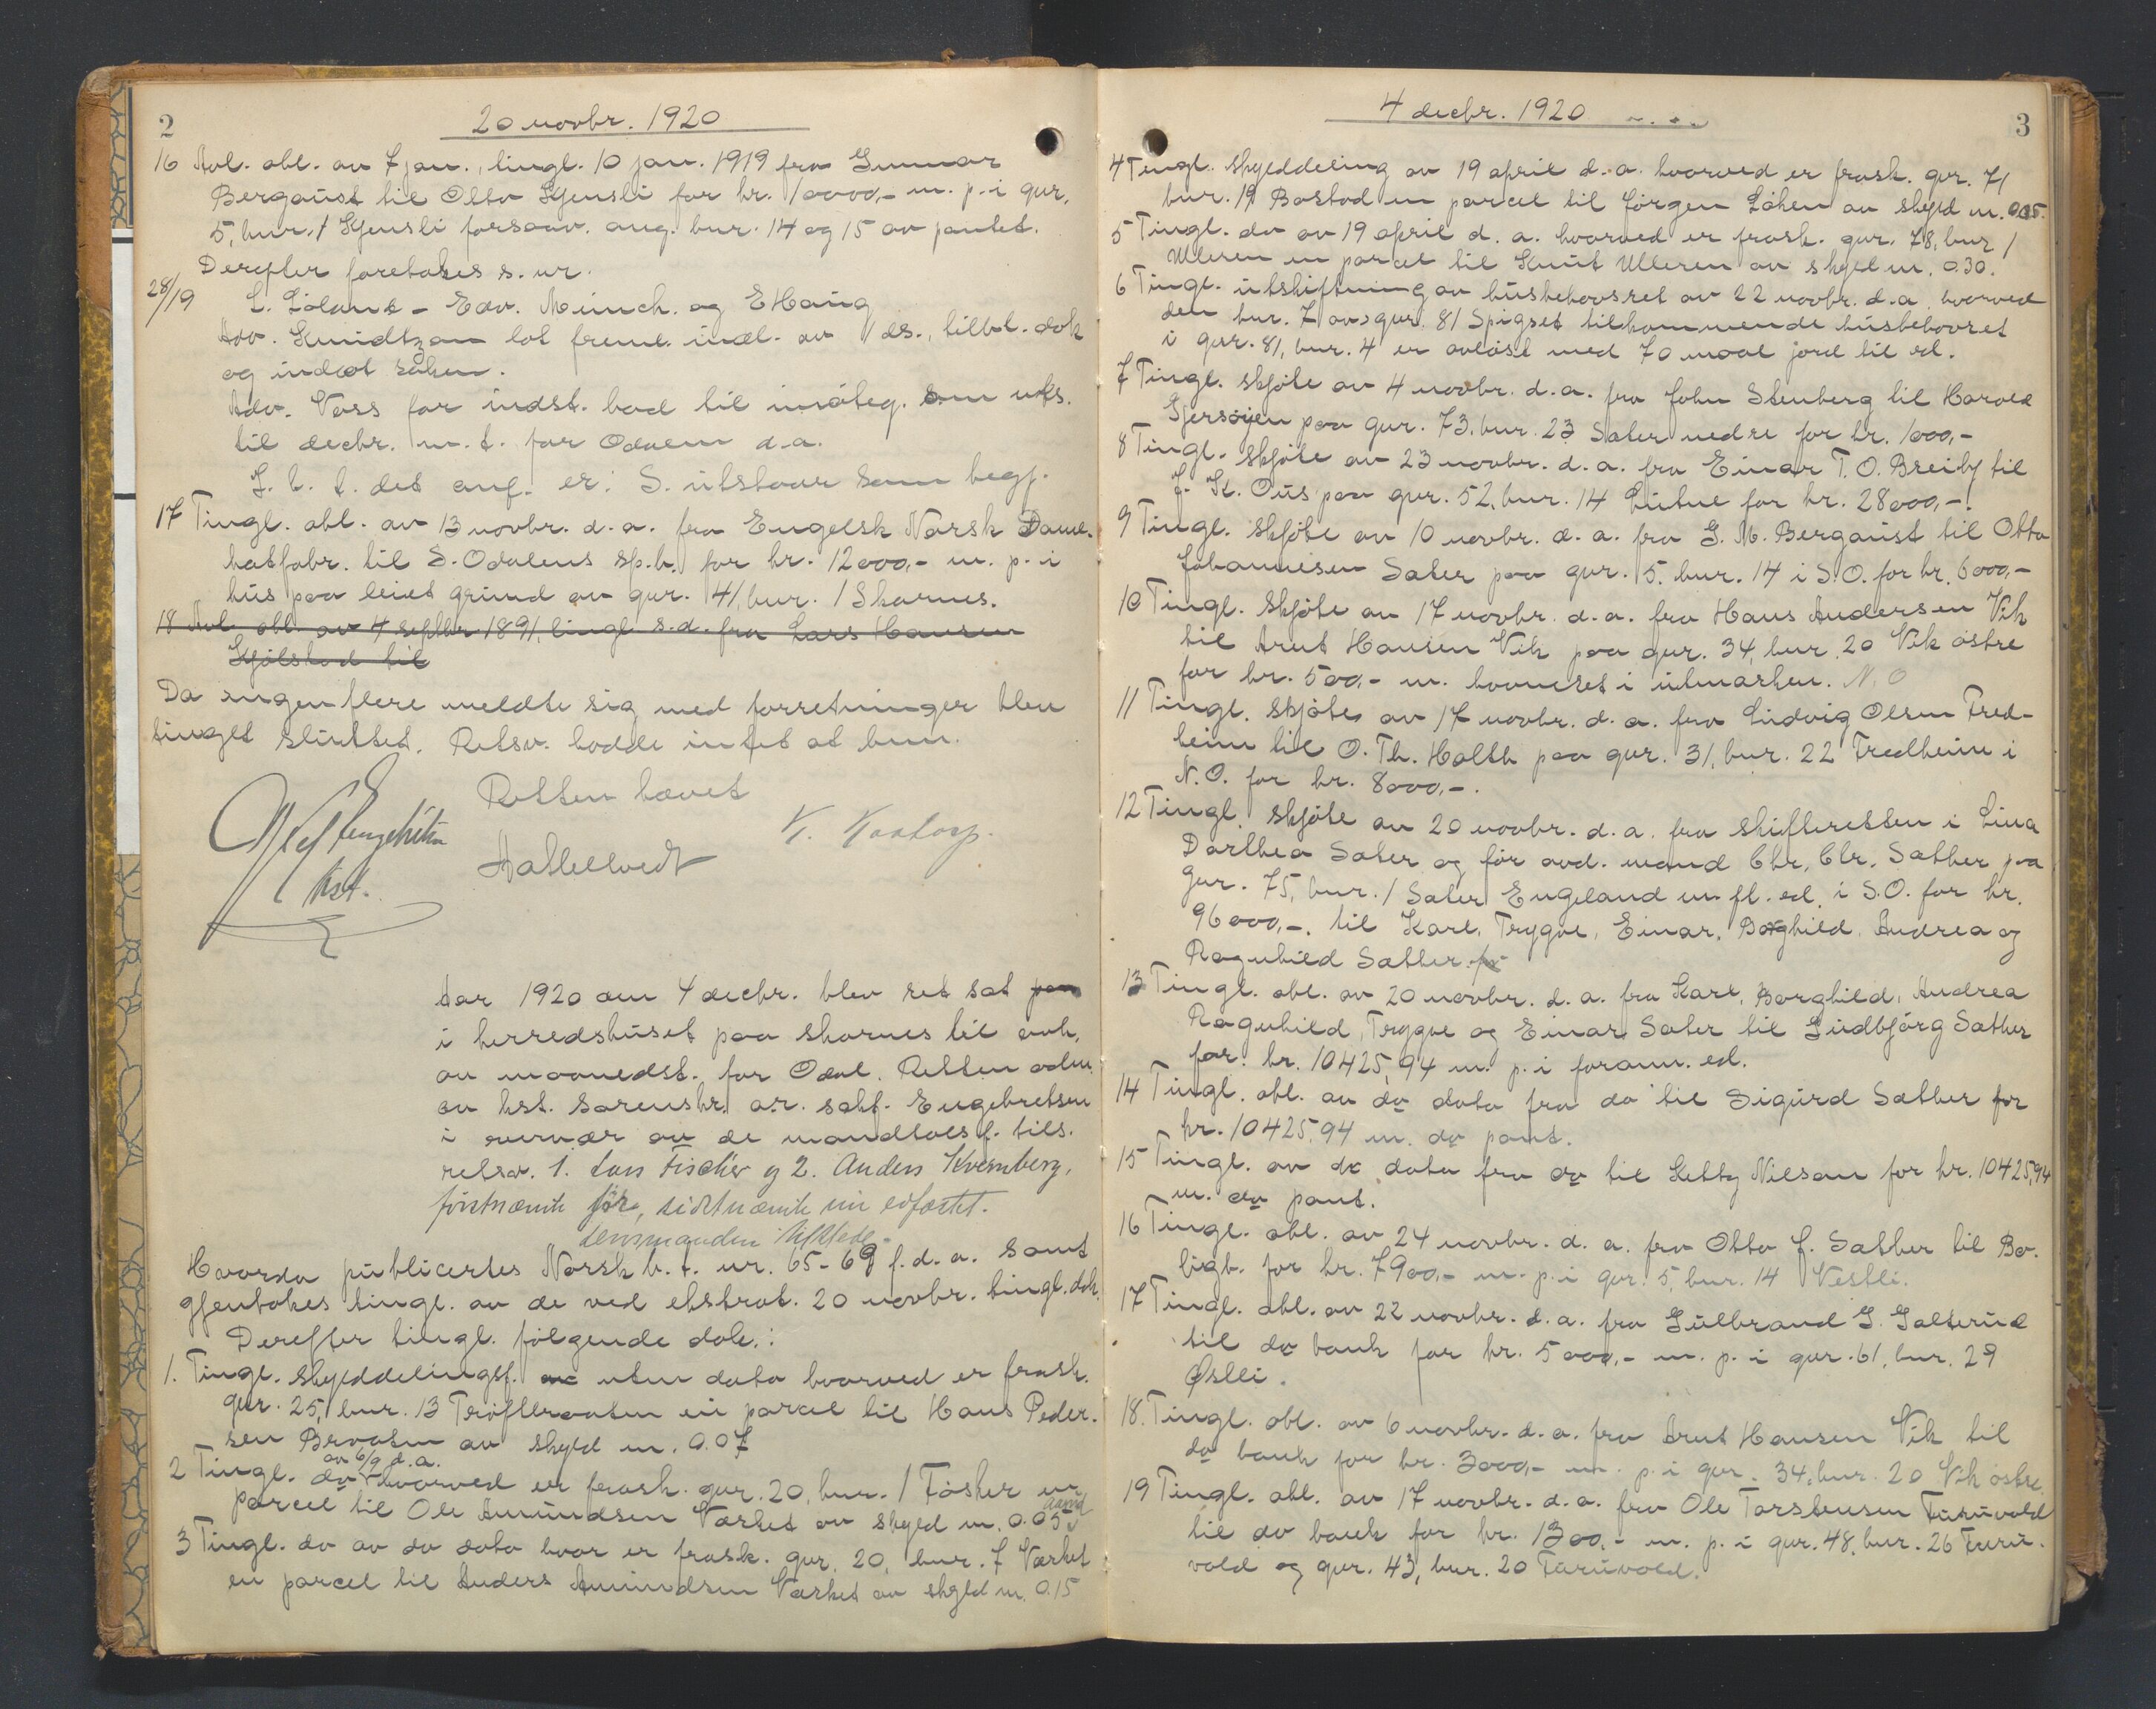 2
20 novbr. 1920
16 Avl. obl. av 7 jan., tingl. 10 jan. 1919 fra Gunnar
Bergaust til Otto Kjensli for kr. 10000,- m. p. i gnr.
5, bnr. 1 Kjensli forsaav. ang. bnr. 14 og 15 av pantet.
Derefter foretokes s. nr.
28/19 L. Löland - Edv. Münch. og E Haug
Adv. Knudtzon lot freml. indl. av 1 ds., tilbl. dok
og indlot saken.
Adv. Voss for indst. bad til imöteg. om uts.
til decbr. m. t. for Odalen d.a.
I. b. t. det anf. er: S. utstaar som begj.
17 Tingl. obl. av 13 novbr. d. a. fra Engelsk Norsk Dame-
hatfabr. til S. Odalens sp.b. for kr. 12000,- m. p. i
hus paa leiet grund av gnr. 41, bnr. 1 Skarnes.
18 Avl. obl. av 4 septbr 1891, tingl. s.d. fra Lars Hansen
Kjölstad til
Da ingen flere meldte sig med forretninger blev
tinget sluttet. Retsv. hadde intet at bem.
Retten hævet
Engebretsen
kst.
K. Kaatorp.
Aar 1920 den 4 decbr. blev ret sat paa
i herredshuset paa skarnes til avh.
av maanedst. for Odal. Retten adm.
av kst. sorenskr. o.r. sakf. Engebretsen
i nærvær av de mandtalsf. tils.
retsv. 1. Lars Fischer og 2. Anders Kvernberg,
förstnævnte för, sidstnævnte nu edfæstet.
Lensmanden tilstede.
Hvorda publicertes Norsk k. t. nr. 65-69 f. d. a. samt
gjentokes tingl. av de ved ekstrat. 20 novbr. tingl. dok.
Derefter tingl. fölgende dok.:
1. Tingl. skylddelingsf. av uten data hvorved er frask.
gnr. 25, bnr. 13 Tröfteraaten en parcel til Hans Peder-
sen Braaten av skyld m. 0.07
av 6/9 d.a.
2 Tingl. do hvorved er frask. gnr. 20, bnr. 1 Fosker en
parcel til Ole Amundsen Værket av skyld m. 0.05
3 Tingl. do av do dato hvor er frask. gnr. 20, bnr. 7 Værket
en parcel til Anders Amundsen Værket av skyld m. 0.15
4 decbr. 1920
3
4 Tingl. skylddeling av 19 april d. a. hvorved er frask. gnr. 71
bnr. 19 Bostad en parcel til Jörgen Löken av skyld m. 0.15.
5 Tingl. do av 19 april d. a. hvorved er frask. gnr. 78, bnr 1
Ulleren en parcel til Knut Ulleren av skyld m. 0.30.
6 Tingl. utskiftning av husbehovsret av 22 novbr. d.a. hvorved
den bnr. 7 av gnr. 81 Spigset tilkommende husbehovret
i gnr. 81, bnr. 4 er avlöst med 70 maal jord til ed.
7 Tingl. skjöte av 4 novbr. d. a. fra John Stenberg til Harald
Gjersöyen paa gnr. 73, bnr. 23 Sater nedre for kr. 1000,-
8 Tingl. skjöte av 23 novbr. d. a. fra Einar T. O. Breiby til
J. Kr. Ous paa gnr. 52, bnr. 14 Lutue for kr. 28000,-
9 Tingl. skjöte av 10 novbr. d. a. fra G. M. Bergaust til Otto
Johannesen Sater paa gnr. 5. bnr. 14 i S.O. for kr. 6000,-
10 Tingl. skjöte av 17 novbr. d. a. fra Hans Andersen Vik
til Arnt Hansen Vik paa gnr. 34, bnr. 20 Vik östre
for kr. 500,- m. havneret i utmarken. N. O
11 Tingl. skjöte av 17 novbr. d. a. fra Ludvig Olsen Fred-
heim til O. Th. Holth paa gnr. 31, bnr. 22 Fredheim i
N. O. for kr. 8000,-.
12 Tingl. skjöte av 20 novbr. d. a. fra skifteretten i Lina
Dorthea Sater og för avd. mand Chr. Chr. Sæther paa
gnr. 75, bnr. 1 Sater Engeland m fl. ed. i S.O. for kr.
96000,-. til Karl, Trygve, Einar, Borghild, Andrea og
Ragnhild Sæther.
13 Tingl. obl. av 20 novbr. d. a. fra Karl, Borghild, Andrea
Ragnhild, Trygve og Einar Sater til Gudbjörg Sæther
for kr. 10425,94 m. p. i forann. ed.
14 Tingl. obl. av do dato fra do til Sigurd Sæther for
kr. 10425,94 m. do pant.
15 Tingl. av do dato fra do til Ketty Nilsen for kr. 10425,94
m. do pant.
16 Tingl. obl. av 24 novbr. d. a. fra Otto J. Sæther til Bo-
ligb. for kr. 7900,- m. p. i gnr. 5, bnr. 14 Vestli.
17 Tingl. obl. av 22 novbr. d. a. fra Gulbrand G. Galterud
til do bank for kr. 5000,- m. p. i gnr. 61, bnr. 29
Østli.
18. Tingl. obl. av 6 novbr. d. a. fra Arnt Hansen Vik til
do bank for kr. 3000,- m. p. i gnr. 34, bnr. 20 Vik östre.
19 Tingl. obl. av 17 novbr. d. a. fra Ole Torstensen Furuvold
til do bank for kr. 1300,- m. p. i gnr. 48, bnr. 26 Furu-
vold og gnr. 43, bnr. 20 Furuvold.